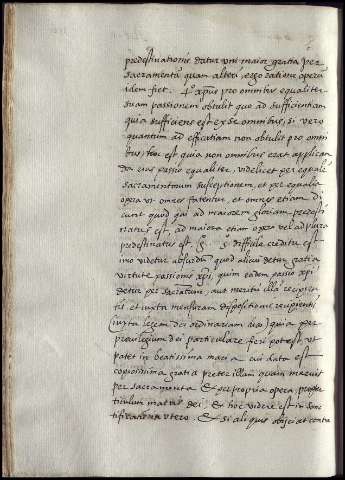 predestinationis datur uni maior gratia per
sacramenta quam alteri, ergo ratione operum
idem fiet. 4º xp̄us pro omnibus equaliter
suam passionem obtulit que ad sufficientiam
quia sufficiens est ex se omnibus, si vero
quantum ad efficatiam non obtulit pro omni
bus, hoc est quia non omnibus erat applican
da eius passio equaliter, videlicet per equalē
sacramentorum susceptionem, et per equalia
opera ut omnes fatentur, et omnes etiam di
cunt quod qui ad maiorem gloriam predesti
natus est, ad maiora etiam opera vel ad plura
predestinatus est. 5. difficile creditu est
imo videtur absurdū quod alicui detur gratia
virtute passionis xp̄i, quin eadem passio xp̄i
detur per sacramentum, aut meritū illā recipien
tis et iuxta mensuram dispositionis recipientis
(iuxta legem dei ordinariam dico) quia per
previlegium dei particulare fieri potest, ut
patet in beatissima maria cui data est
copiosissima gratia preter illam quam meruit
per sacramenta & per propria opera, propter
titulum matris dei. & hoc videre est in sanc
tificatione in utero. & si aliquis obijciat contra